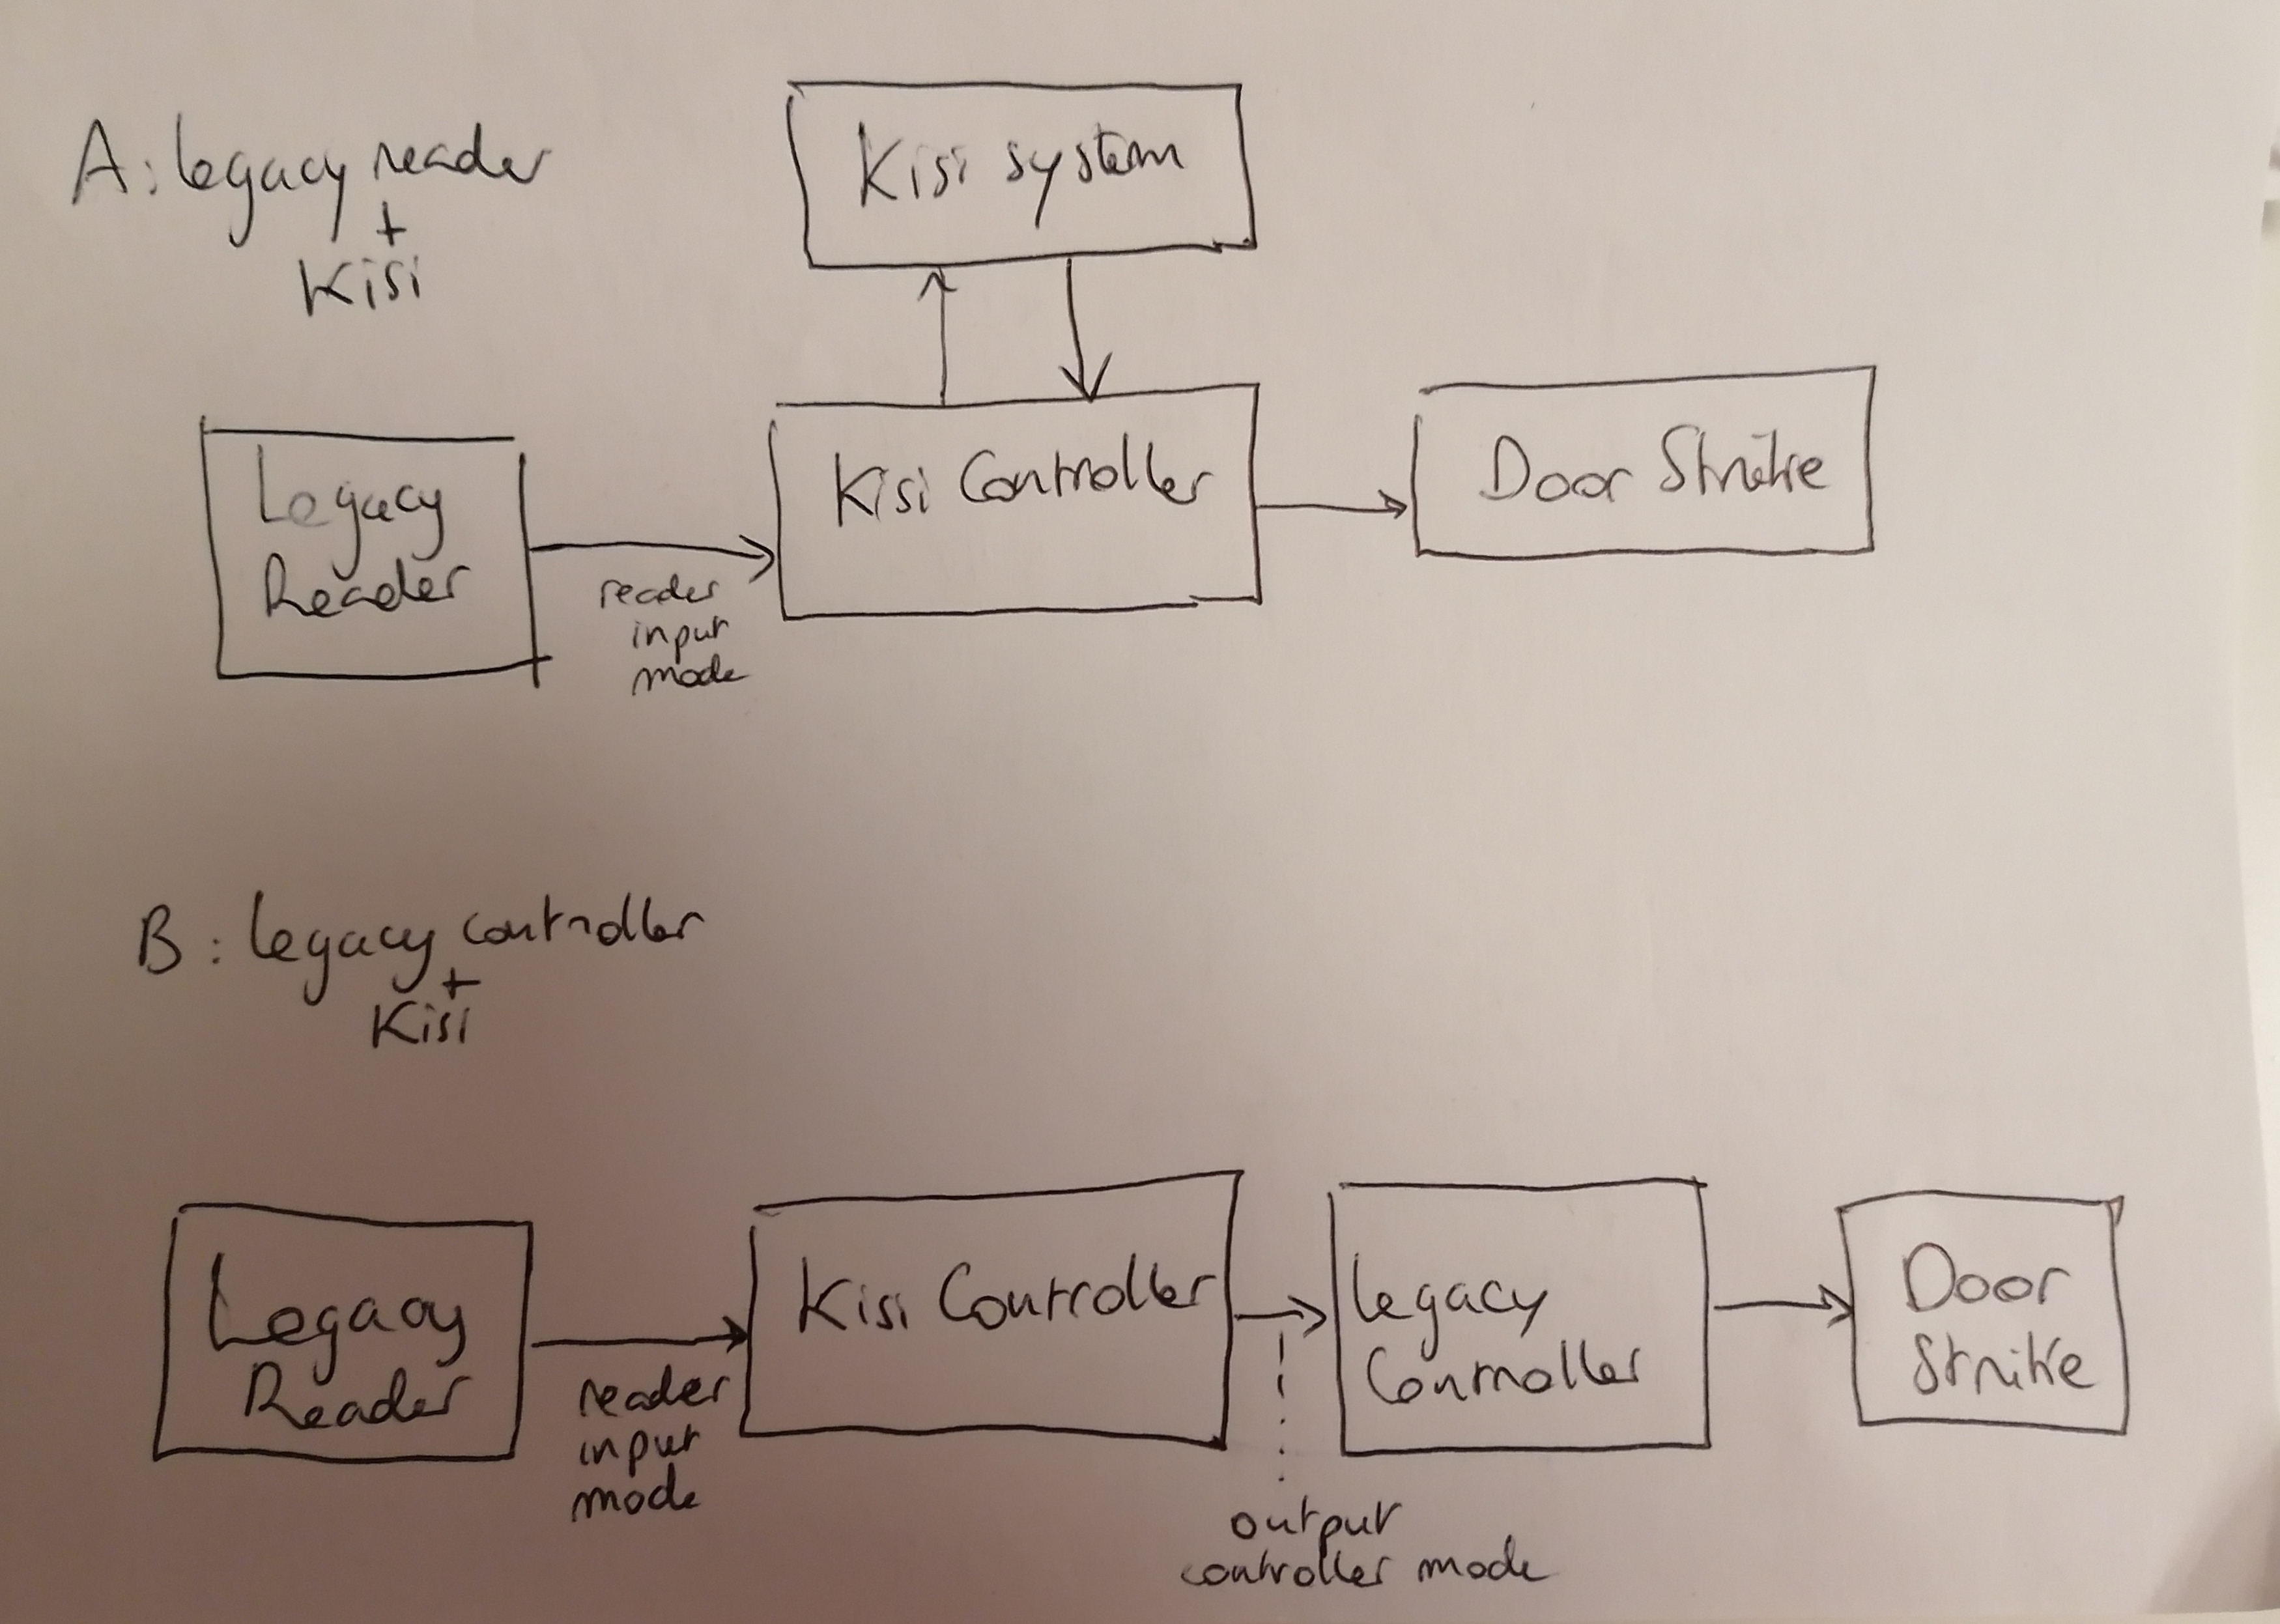 A: legacy reader
+
Kisi
Kisi system
Legacy
Reader
reader
input
mode
Kisi Controller
Door Strike
B: legacy controller
+
Kisi
Legacy
Reader
reader
input
mode
Kisi Controller
legacy
Controller
Door
Strike
output
controller mode